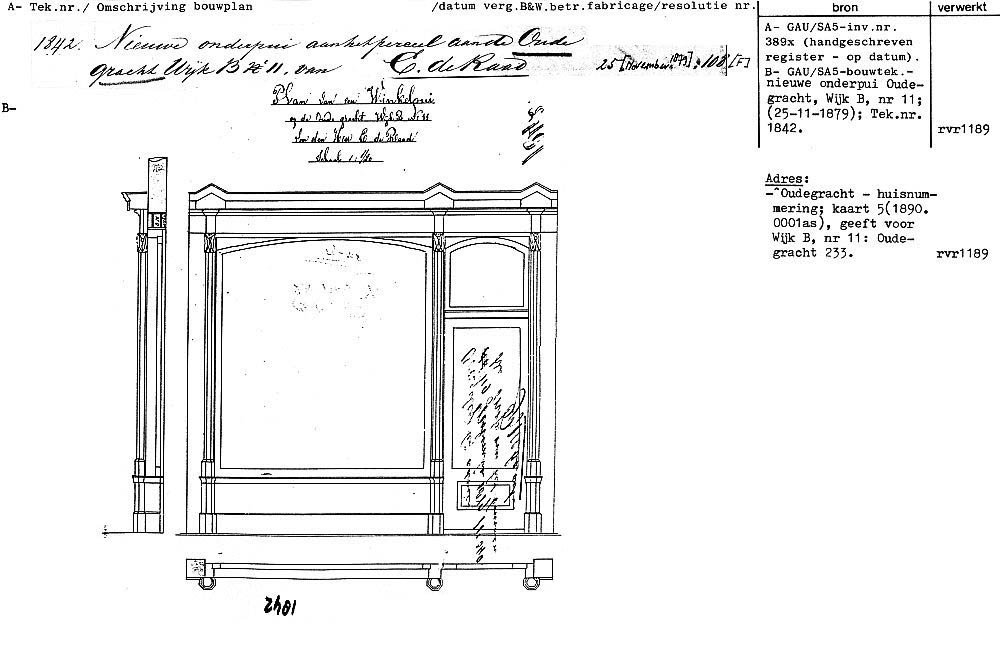 A- Tek.nr./ Omschrijving bouwplan /datum verg.B&W.betr.fabricage/resolutie nr.
bron
verwerkt
1842. Nieuwe onderpui aan het perceel aan de Oude
gracht Wijk B No 11. van E. de Raad 25 [November 1879]. 108 [F]
B-
Plan van een Winkelpui
op de Oude gracht Wijk B No 11
Van den Heer E de Raad
Schaal 1:
1842
A- GAU/SA5-inv.nr.
389x (handgeschreven
register - op datum).
B- GAU/SA5-bouwtek.-
nieuwe onderpui Oude-
gracht, Wijk B, nr 11;
(25-11-1879); Tek.nr.
1842.
rvr1189
Adres:
-^Oudegracht - huisnum-
mering; kaart 5(1890.
0001as), geeft voor
Wijk B, nr 11: Oude-
gracht 233.
rvr1189